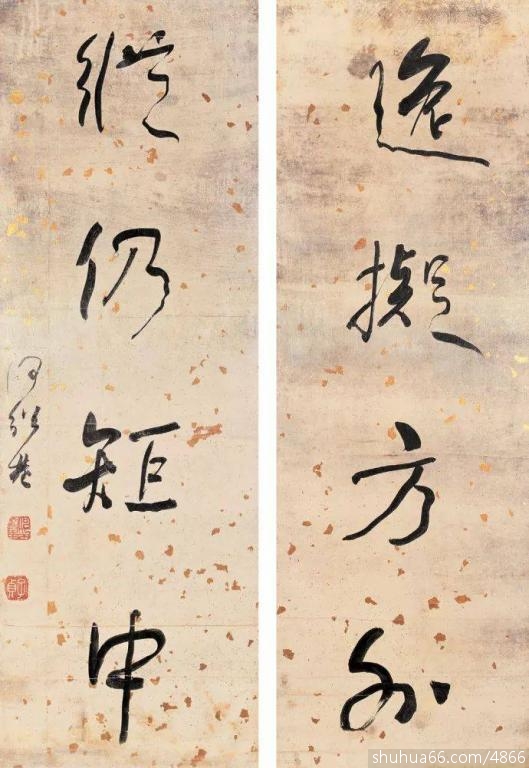 逸擬方外
縱仍矩中
何紹基
子貞
shuhua66.com/4866